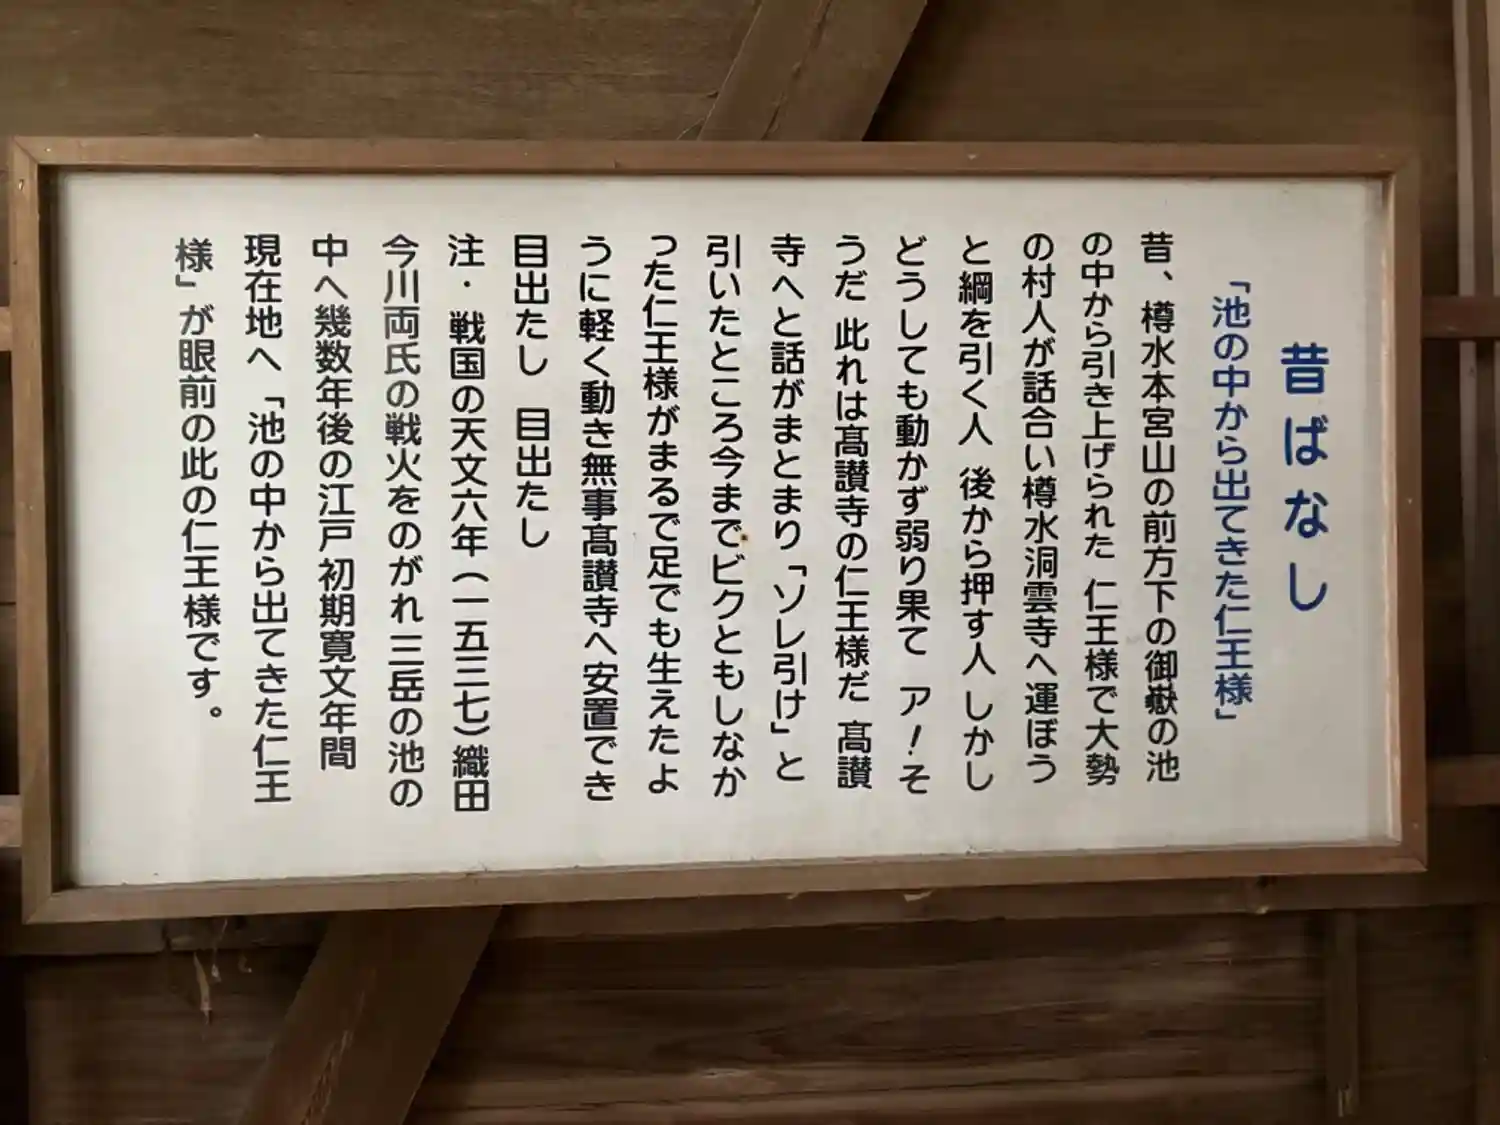 昔ばなし
「池の中から出てきた仁王様」
昔、樽水本宮山の前方下の御嶽の池
の中から引き上げられた 仁王様で大勢
の村人が話合い樽水洞雲寺へ運ぼう
と綱を引く人 後から押す人 しかし
どうしても動かず弱り果て ア！そ
うだ 此れは髙讃寺の仁王様だ 髙讃
寺へと話がまとまり「ソレ引け」と
引いたところ今までビクともしなか
った仁王様がまるで足でも生えたよ
うに軽く動き無事髙讃寺へ安置でき
目出たし 目出たし
注・戦国の天文六年（一五三七）織田
今川両氏の戦火をのがれ三岳の池の
中へ幾数年後の江戸初期寛文年間
現在地へ「池の中から出てきた仁王
様」が眼前の此の仁王様です。